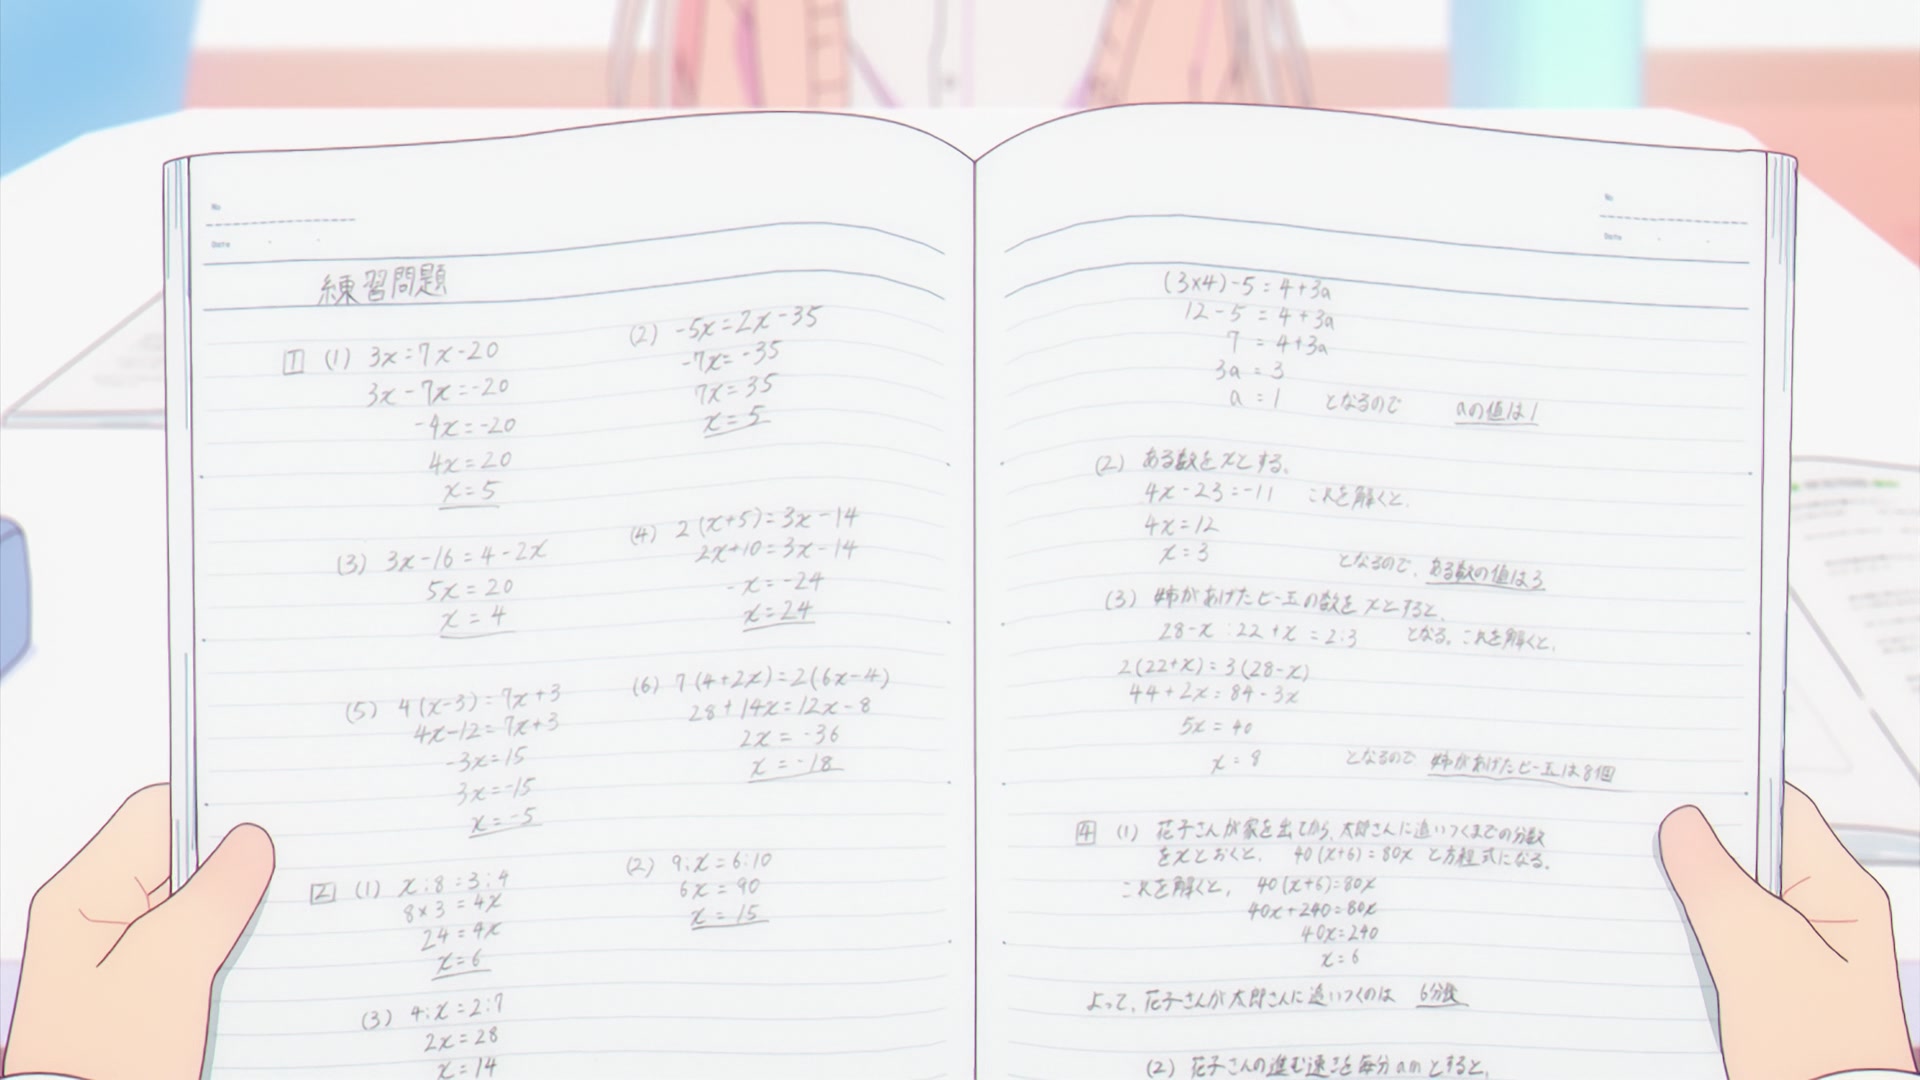 No
Date
練習問題
1 (1) 3x=7x-20
3x-7x=-20
-4x=-20
4x=20
x=5
(2) -5x=2x-35
-7x=-35
7x=35
x=5
(3) 3x-16=4-2x
5x=20
x=4
(4) 2(x+5)=3x-14
2x+10=3x-14
-x=-24
x=24
(5) 4(x-3)=7x+3
4x-12=7x+3
-3x=15
3x=-15
x=-5
(6) 7(4+2x)=2(6x-4)
28+14x=12x-8
2x=-36
x=-18
2 (1) x:8=3:4
8×3=4x
24=4x
x=6
(2) 9:x=6:10
6x=90
x=15
(3) 4:x=2:7
2x=28
x=14
No
Date
(3×4)-5=4+3a
12-5=4+3a
7=4+3a
3a=3
a=1 となるので aの値は1
(2) ある数をxとする。
4x-23=-11 これを解くと、
4x=12
x=3 となるので、ある数の値は3
(3) 姉があげたビー玉の数をxとすると、
28-x:22+x=2:3 となる。これを解くと、
2(22+x)=3(28-x)
44+2x=84-3x
5x=40
x=8 となるので 姉があげたビー玉は8個
4 (1) 花子さんが家を出てから、太郎さんに追いつくまでの分数
をxとおくと、 40(x+6)=80x と方程式になる。
これを解くと、 40(x+6)=80x
40x+240=80x
40x=240
x=6
よって、花子さんが太郎さんに追いつくのは 6分後
(2) 花子さんの進む速さを毎分amとすると、